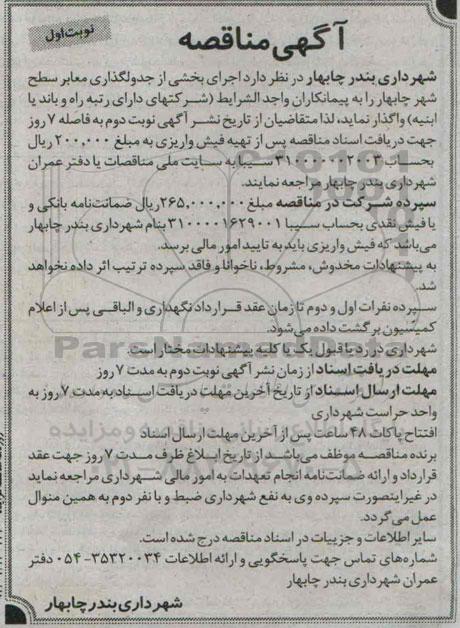 نوبت اول
آگهی مناقصه
شهرداری بندر چابهار در نظر دارد اجرای بخشی از جدولگذاری معابر سطح
شهر چابهار را به پیمانکاران واجد الشرایط (شرکتهای دارای رتبه راه و باند یا
ابنیه) واگذار نماید، لذا متقاضیان از تاریخ نشر آگهی نوبت دوم به فاصله ۷ روز
جهت دریافت اسناد مناقصه پس از تهیه فیش واریزی به مبلغ ۲۰۰,۰۰۰ ریال
بحساب ۳۱۰۰۰۰۰۱۲۰۰۳ سیبا به سایت ملی مناقصات یا دفتر عمران
شهرداری بندر چابهار مراجعه نمایند.
سپرده شرکت در مناقصه مبلغ ۲۶۵,۰۰۰,۰۰۰ ریال ضمانت‌نامه بانکی و
یا فیش نقدی بحساب سیبا ۳۱۰۰۰۰۱۶۲۹۰۰۱ بنام شهرداری بندر چابهار
می‌باشد که فیش واریزی باید به تایید امور مالی برسد.
به پیشنهادات مخدوش، مشروط، ناخوانا و فاقد سپرده ترتیب اثر داده نخواهد
شد.
سپرده نفرات اول و دوم تا زمان عقد قرارداد نگهداری و الباقی پس از اعلام
کمیسیون برگشت داده می‌شود.
شهرداری در رد یا قبول یک یا کلیه پیشنهادات مختار است.
مهلت دریافت اسناد از زمان نشر آگهی نوبت دوم به مدت ۷ روز
مهلت ارسال اسناد از تاریخ آخرین مهلت دریافت اسناد به مدت ۷ روز به
واحد حراست شهرداری
افتتاح پاکات ۴۸ ساعت پس از آخرین مهلت ارسال اسناد
برنده مناقصه موظف می‌باشد از تاریخ ابلاغ ظرف مدت ۷ روز جهت عقد
قرارداد و ارائه ضمانت‌نامه انجام تعهدات به امور مالی شهرداری مراجعه نماید
در غیر اینصورت سپرده وی به نفع شهرداری ضبط و با نفر دوم به همین منوال
عمل می‌گردد.
سایر اطلاعات و جزییات در اسناد مناقصه درج شده است.
شماره‌های تماس جهت پاسخگویی و ارائه اطلاعات ۳۵۳۲۰۰۳۴-۰۵۴ دفتر
عمران شهرداری بندر چابهار
شهرداری بندر چابهار
ParsNamadData